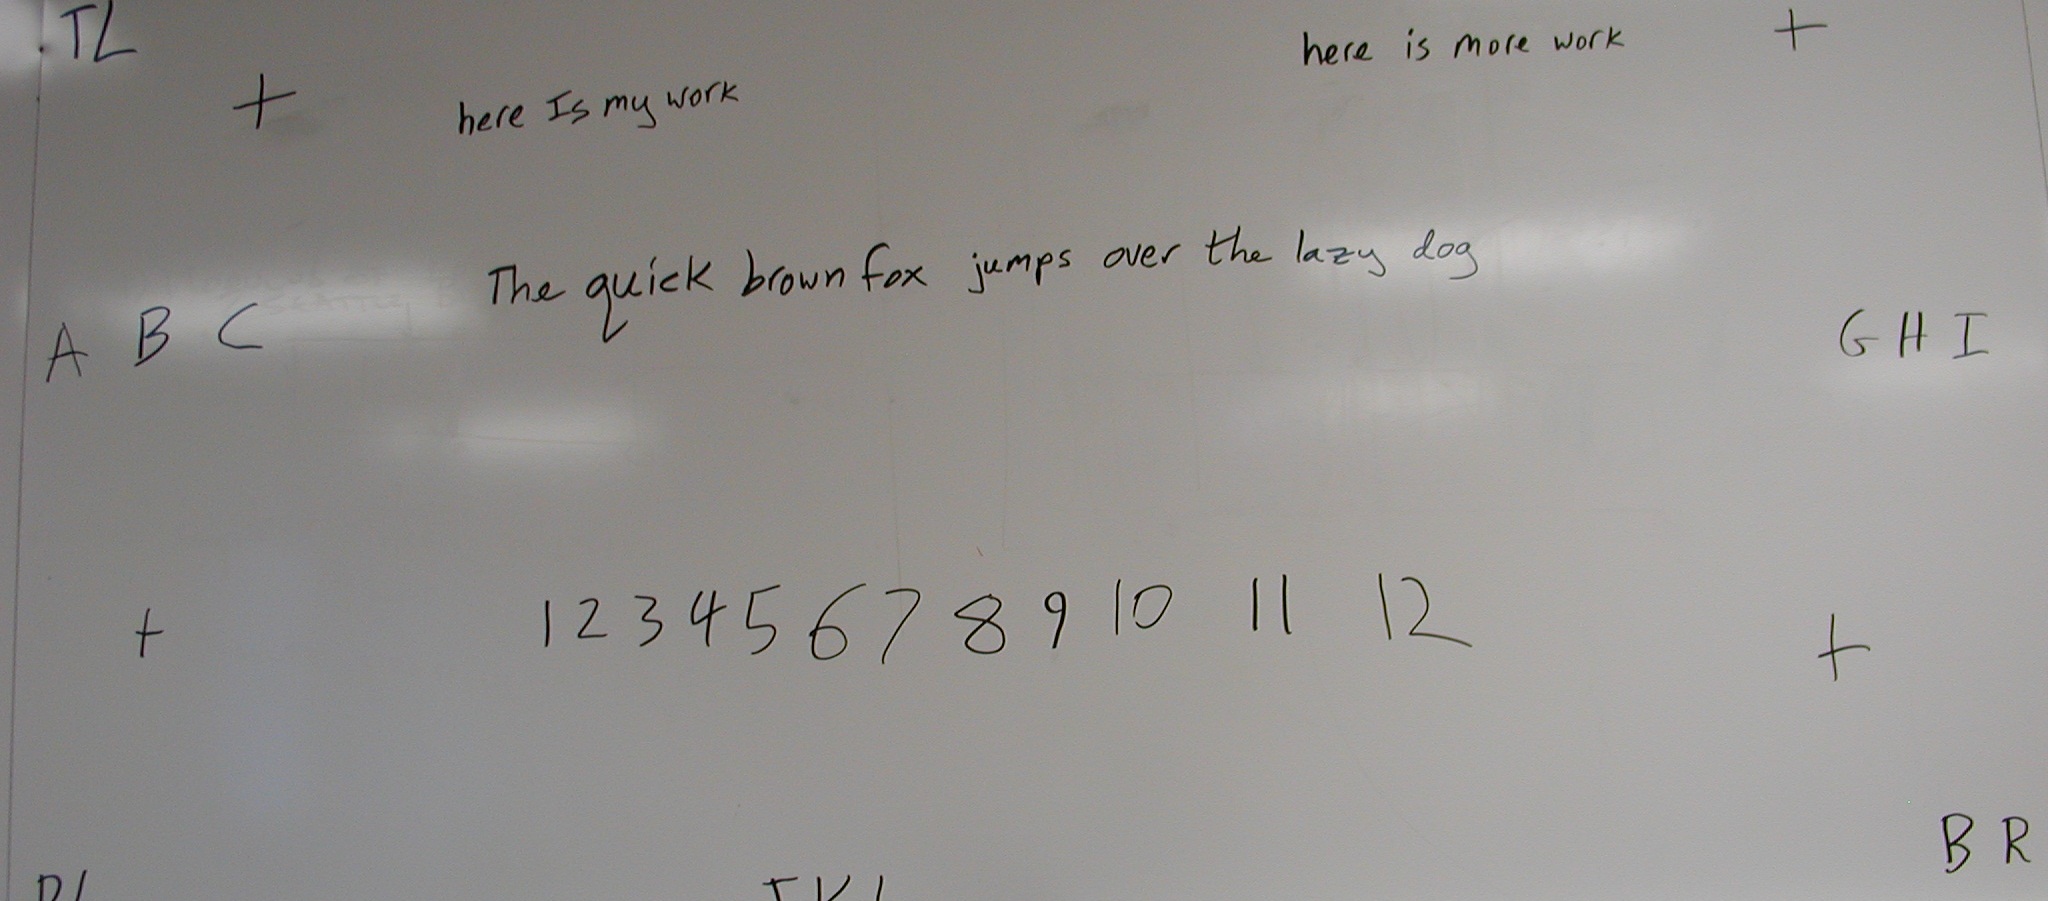 TL
here is more work +
+ here Is my work
The quick brown fox jumps over the lazy dog
A B C
G H I
+ 1 2 3 4 5 6 7 8 9 10 11 12 +
B R